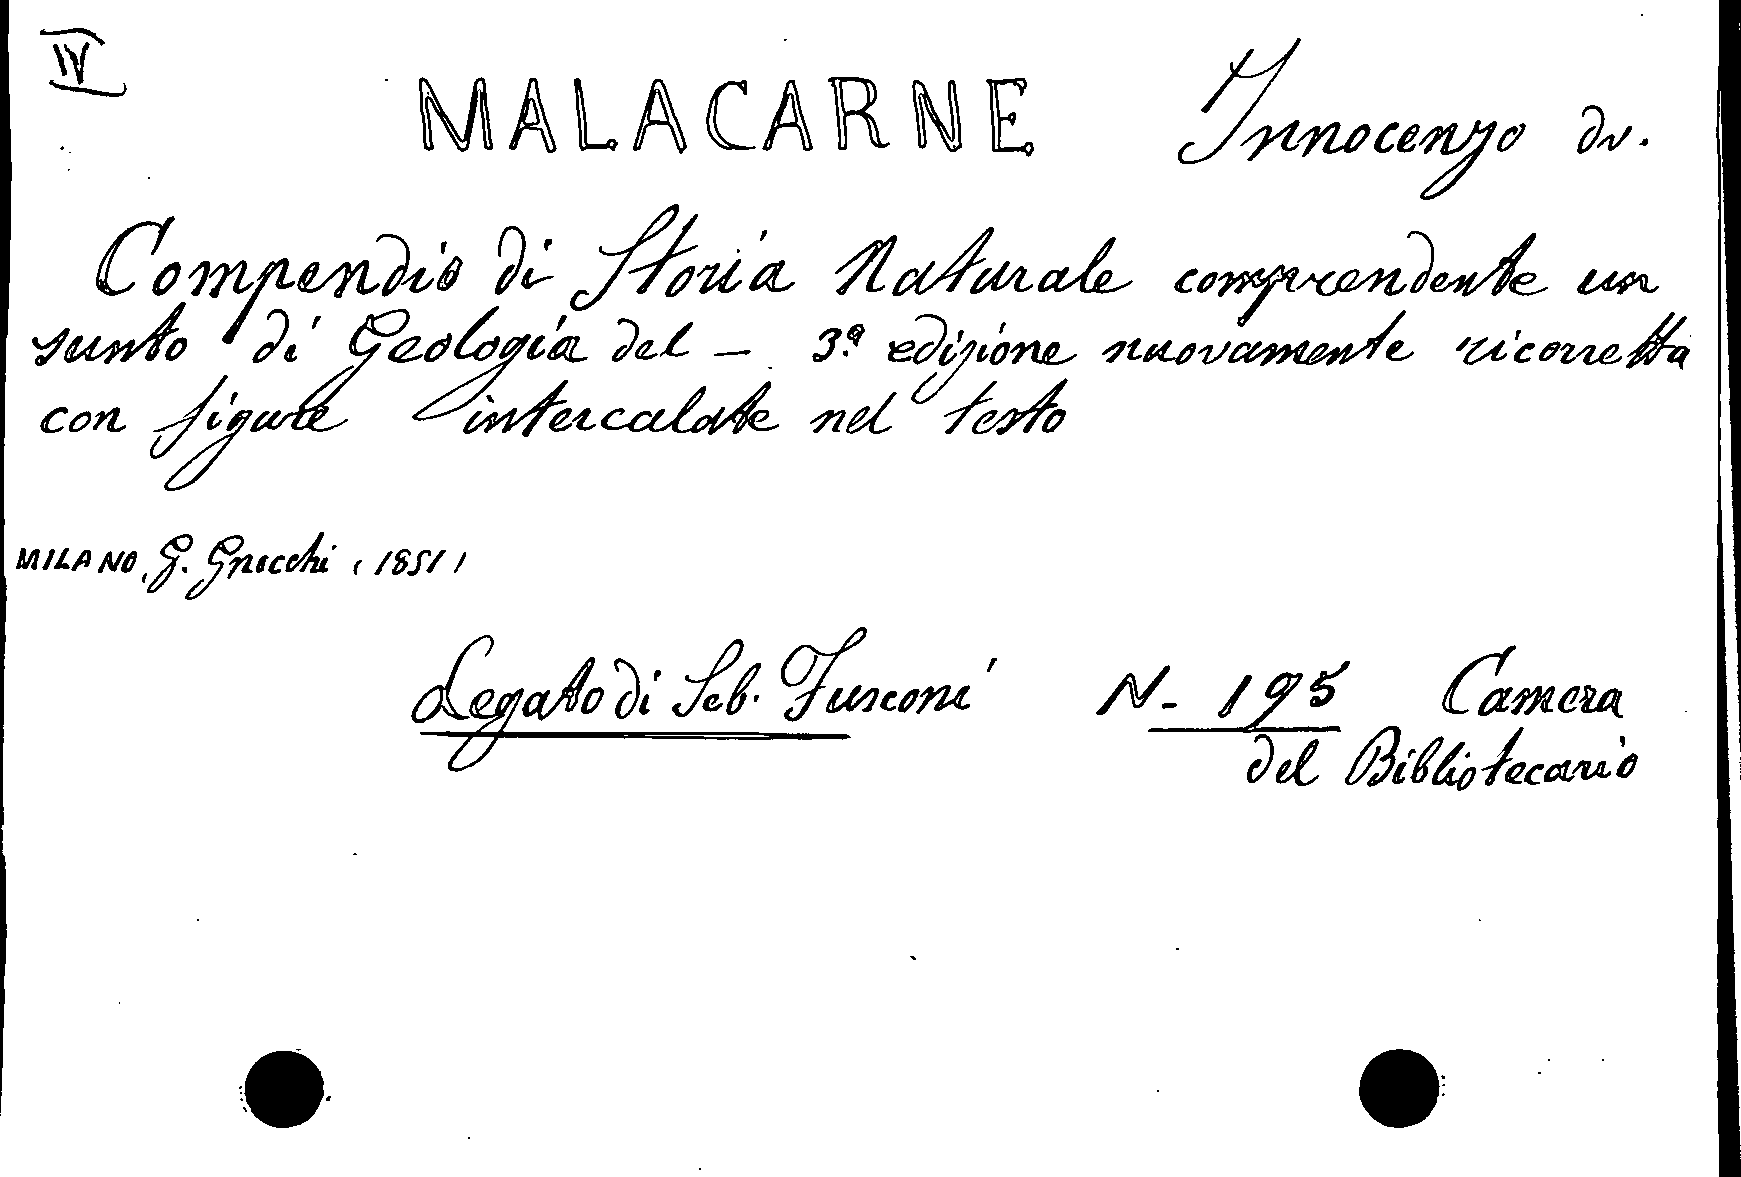 IV
MALACARNE Innocenzo dr.
Compendio di Storia Naturale comprendente un
sunto di Geologia del – 3ª edizione nuovamente ricorretta
con figure intercalate nel testo
MILANO, G. Gnocchi, 1851,
Legato di Seb. Fusconi N- 195 Camera
del Bibliotecario